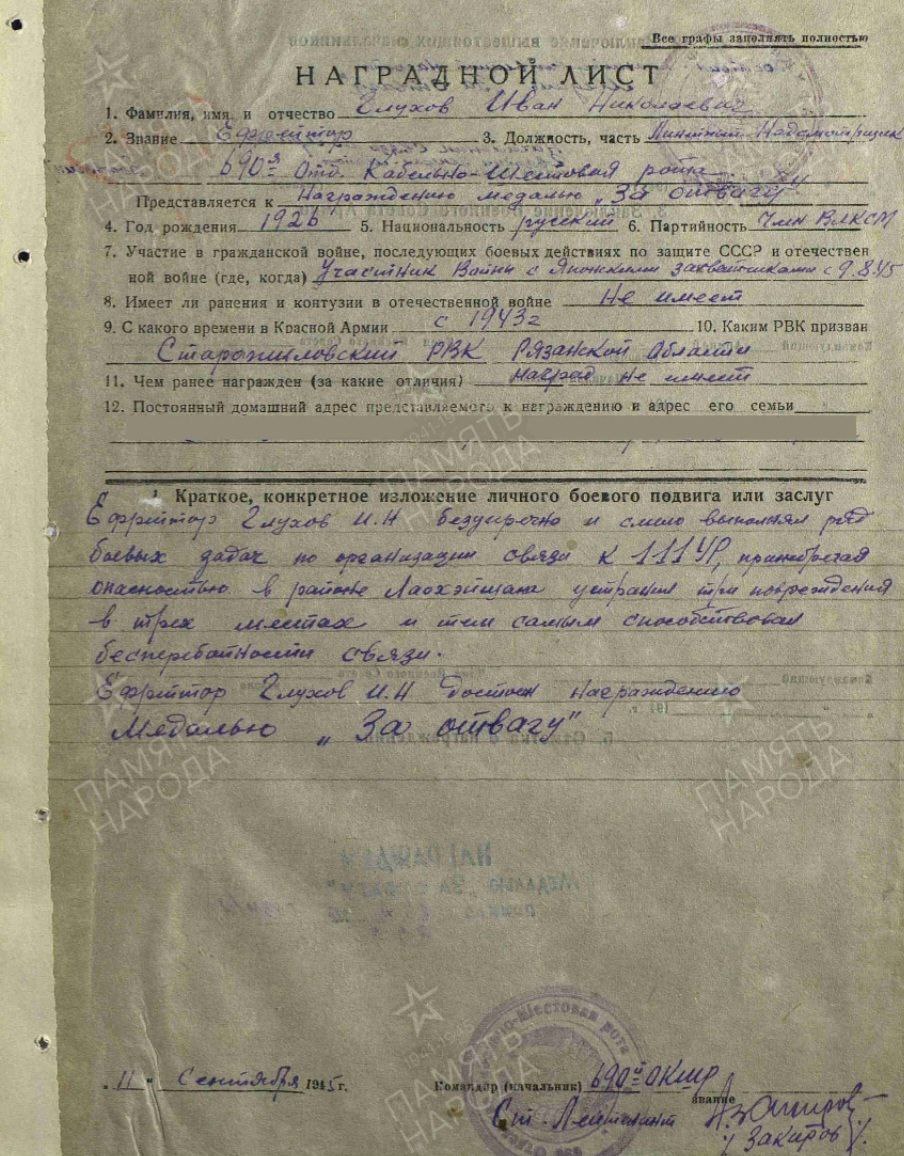 Все графы заполнять полностью
НАГРАДНОЙ ЛИСТ
1. Фамилия, имя и отчество Глухов Иван Николаевич
2. Звание Ефрейтор 3. Должность, часть Линейный Надсмотрщик
690й Отд. Кабельно-Шестовая рота
Представляется к Награждению медалью „За отвагу"
4. Год рождения 1926 5. Национальность русский 6. Партийность Член ВЛКСМ
7. Участие в гражданской войне, последующих боевых действиях по защите СССР и отечествен
ной войне (где, когда) Участник Войны с Японскими захватчиками с 9.8.45
8. Имеет ли ранения и контузии в отечественной войне Не имеет
9. С какого времени в Красной Армии с 1943г 10. Каким РВК призван
Старожиловский РВК Рязанской Области
11. Чем ранее награжден (за какие отличия) Наград не имеет
12. Постоянный домашний адрес представляемого к награждению и адрес его семьи
1. Краткое, конкретное изложение личного боевого подвига или заслуг
Ефрейтор Глухов И.Н безупречно и смело выполнял ряд
боевых задач по организации связи к 111 УР, пренебрегая
опасностью в районе Лаохэйшань устранил три повреждения
в трех местах и тем самым способствовал
бесперебойности связи.
Ефрейтор Глухов И.Н Достоин награждению
Медалью „За отвагу"
НАГРАЖДЕН
МЕДАЛЬЮ „ЗА ОТВАГУ"
Кабельно-Шестовая рота
„11" Сентября 1945 г. Командир (начальник) 690й ОКШР
звание
Ст. Лейтенант
/Закиров/
ПАМЯТЬ
НАРОДА
1941-1945